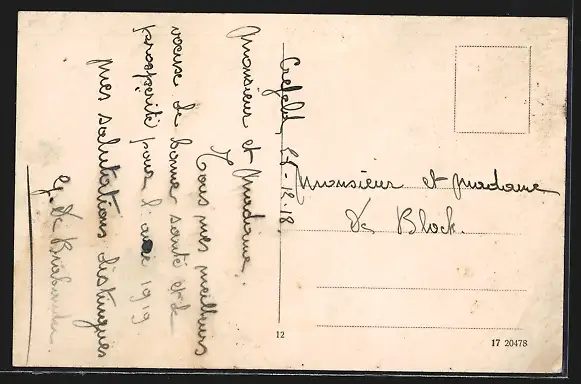 Crefeld, 25-12-18.
Monsieur et Madame.
Tous mes meilleurs
voeux de bonne santé et de
prospérité pour l'anée 1919
Mes salutations distingués
G. De
Monsieur et Madame
De Block.
12
17 20478